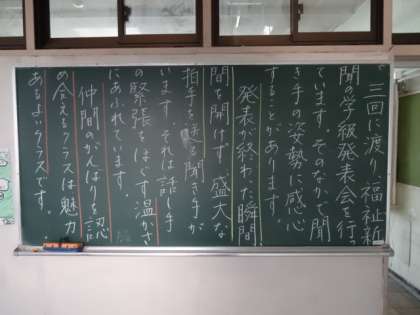 三回に渡り、福祉新
聞の学級発表会を行っ
ています。そのなかで聞
き手の姿勢に感心
することがあります。
発表が終わった瞬間、
間を開けず、盛大な
拍手を送る聞き手が
います。それは話し手
の緊張をほぐす温かさ
にあふれています。
仲間のがんばりを認
め合えるクラスは魅力
あるよいクラスです。